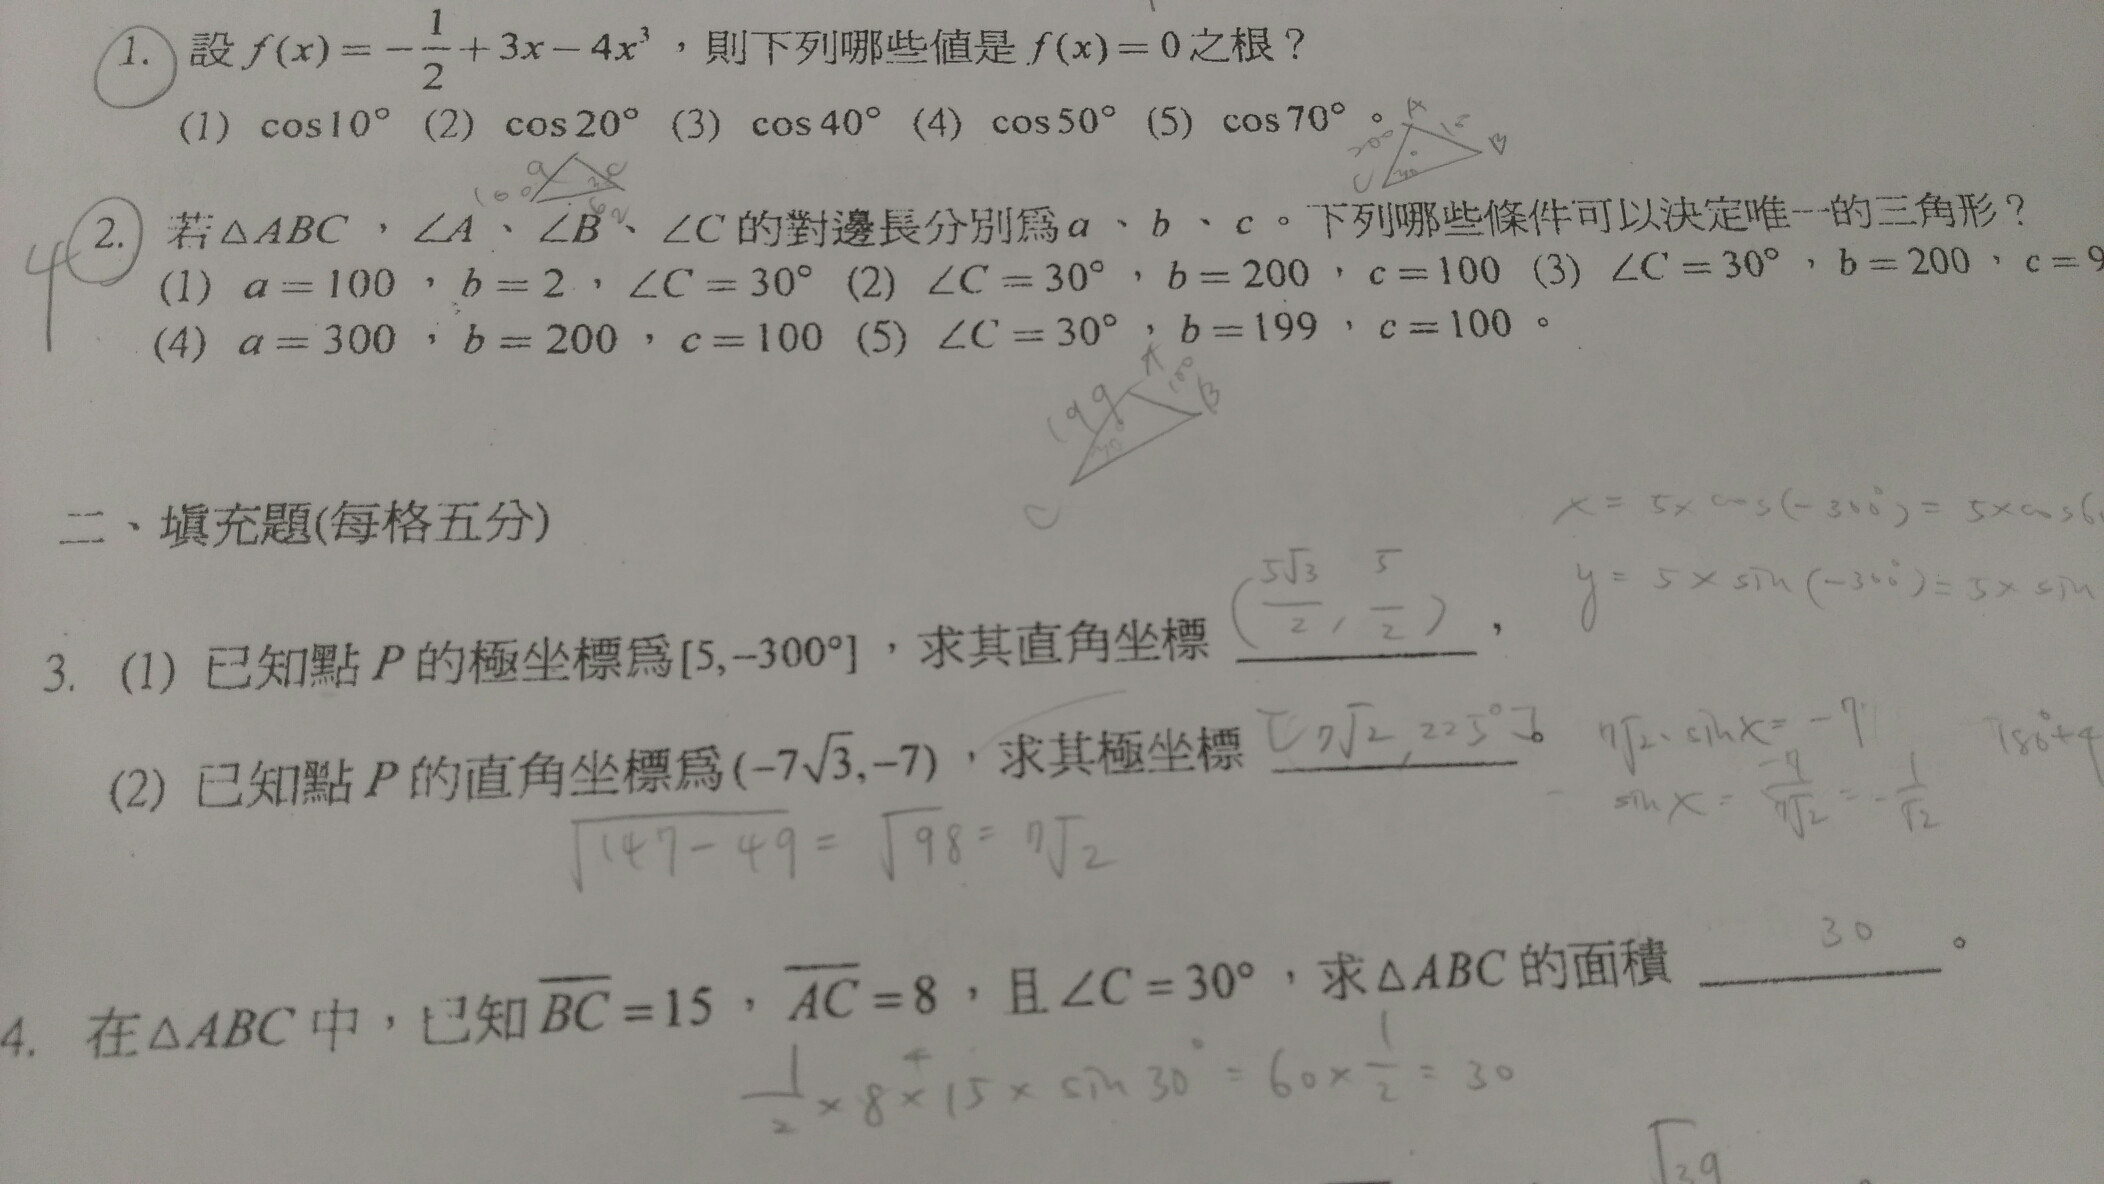 1. 設 f(x) = -\frac{1}{2} + 3x - 4x³，則下列哪些值是 f(x) = 0 之根？
(1) cos10° (2) cos20° (3) cos40° (4) cos50° (5) cos70°。
2. 若△ABC，∠A、∠B、∠C 的對邊長分別爲 a、b、c。下列哪些條件可以決定唯一的三角形？
4
(1) a = 100，b = 2，∠C = 30° (2) ∠C = 30°，b = 200，c = 100 (3) ∠C = 30°，b = 200，c = 9
(4) a = 300，b = 200，c = 100 (5) ∠C = 30°，b = 199，c = 100。
A 100 B
199 30°
C
二、填充題(每格五分)
x = 5× cos(-300°) = 5×cos6
y = 5 × sin(-300°) = 5× sin
3. (1) 已知點 P 的極坐標爲[5,-300°]，求其直角坐標 (\frac{5√3}{2}, \frac{5}{2})，
(2) 已知點 P 的直角坐標爲(-7√3,-7)，求其極坐標 [7√2, 225°]。
7√2·sinx = -7
sinx = \frac{-7}{7√2} = -\frac{1}{√2}
√147-49 = √98 = 7√2
4. 在△ABC 中，已知 BC = 15，AC = 8，且∠C = 30°，求△ABC 的面積 30。
\frac{1}{2} × 8 × 15 × sin30° = 60 × \frac{1}{2} = 30
√39